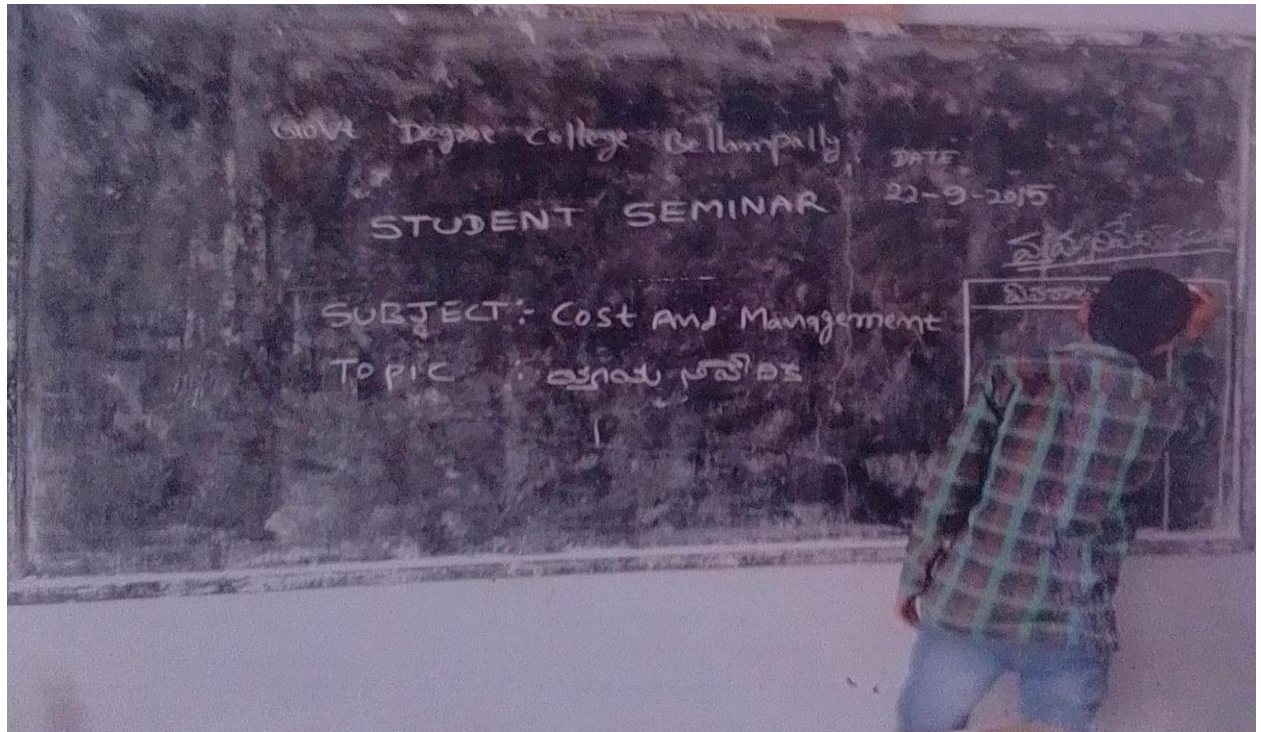 Govt Degree College Bellampally.
DATE
22-9-2015
STUDENT SEMINAR
SUBJECT:- Cost And Management
Topic :